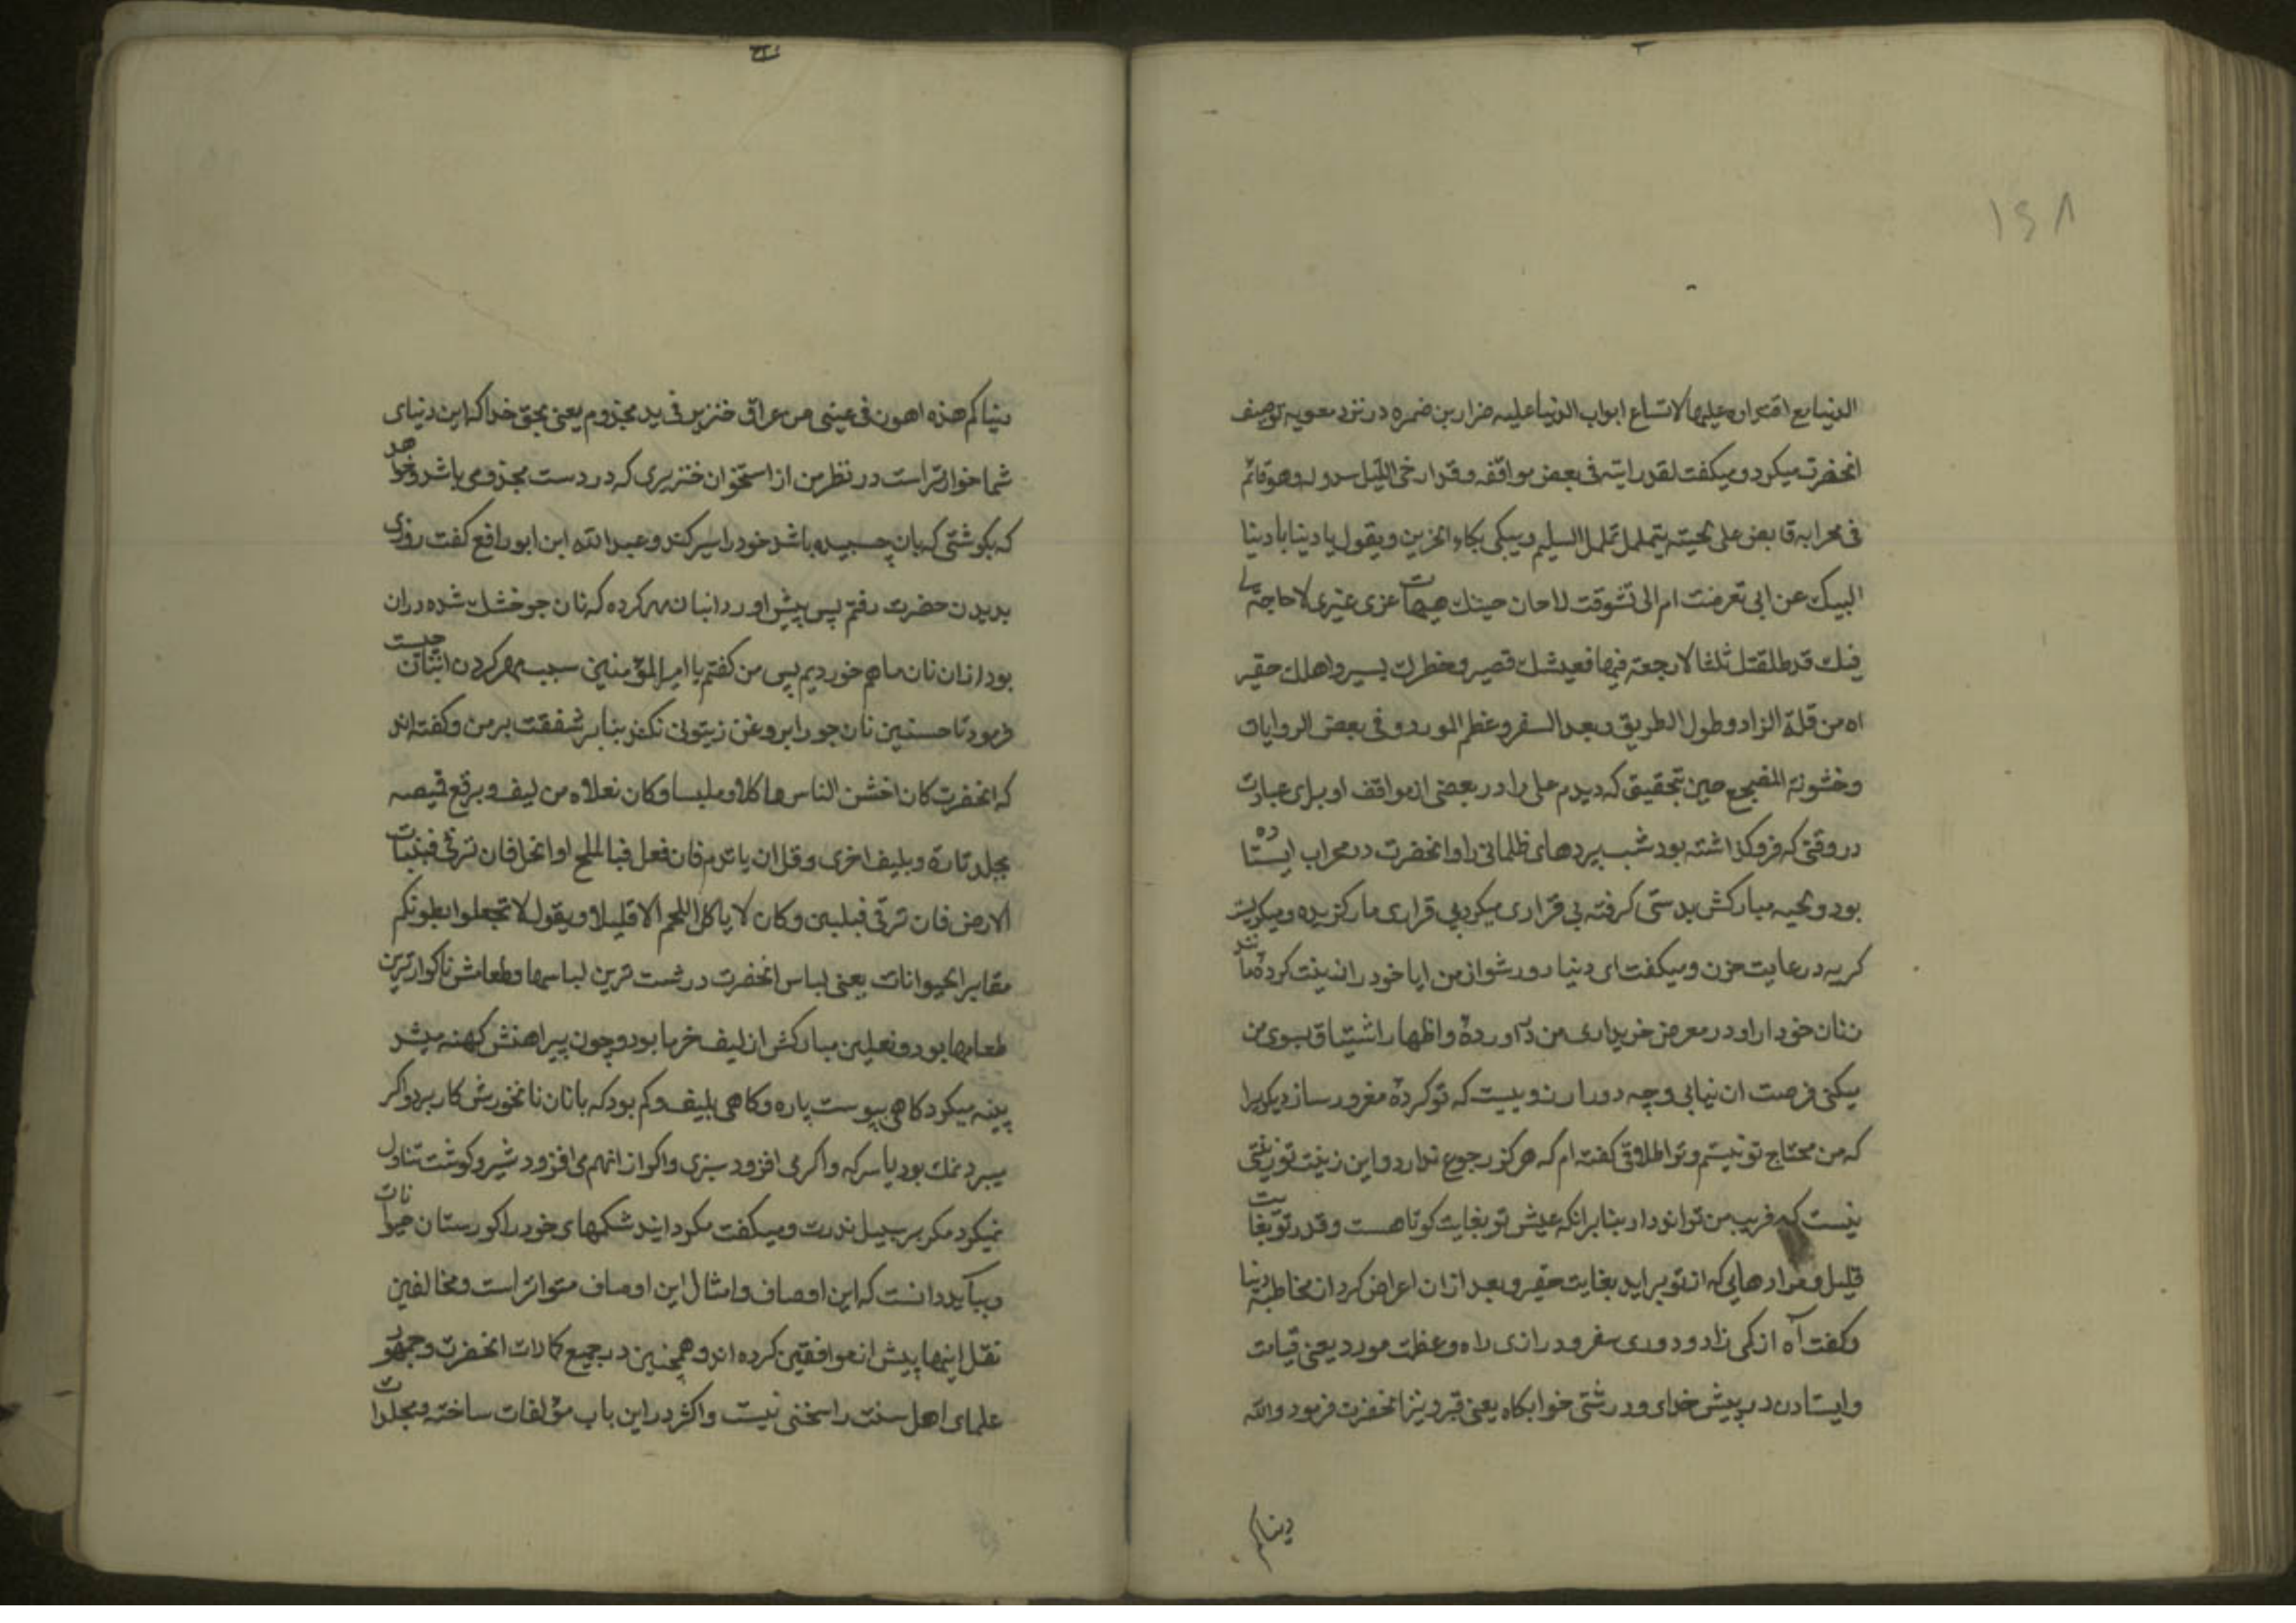 ۱۶۸
الدنیا مع اقتداره علیها لاتساع ابواب الدنیا علیه ضرار بن ضمره در نزد معویه توصیف
انحضرت میکرد و میکفت لقد رایته فی بعض مواقفه و قد ارخی اللیل سدوله و هو قائم
فی محرابه قابض علی لحیته یتململ تململ السلیم و یبکی بکاء الحزین و یقول یا دنیا یا دنیا
الیک عنی ابی تعرضت ام الی تشوقت لا حان حینک هیهات غری غیری لا حاجة لی
فیک قد طلقتک ثلثا لا رجعة فیها فعیشک قصیر و خطرک یسیر و املک حقیر
اه من قلة الزاد و طول الطریق و بعد السفر و عظم المورد و فی بعض الروایات
و خشونة المضجع بتحقیق که دیدم علی را در بعضی از مواقف او برای عبادت
در وقتی که فرو کذاشته بود شب پردهای ظلمانی را و انحضرت در محراب ایستاده
بود و لحیه مبارکش بدستی کرفته بی قراری میکرد بی قراری مار کزیده و میکریست
کریه در غایت حزن و میکفت ای دنیا دور شو از من ایا خود را زینت کردهٔ مانند
زنان خود را و در معرض خریداری من در آوردهٔ و اظهار اشتیاق بسوی من
میکنی فرصت ان نیابی و چه دورا رندوبیست که تو کردهٔ مغرور ساز دیکریرا
که من محتاج تو نیستم و ترا طلاقی کفته ام که هرکز رجوع ندارد و این زینت تو زینتی
نیست که فریب من تواند داد بنا بر انکه عیش تو بغایت کوتاهست و قدر تو بغایت
قلیل و مرادهایی که از تو براید بغایت حقیر و بعد از ان اعراض کرد از مخاطبهٔ دنیا
و کفت آه از کمی زاد و دوری سفر و درازی راه و عظمت مورد یعنی قیامت
و ایستادن در پیش خدای و درشتی خوابکاه یعنی قبر و نیز انحضرت فرمود والله
دنیاکم
دنیاکم هذه اهون فی عینی من عراق خنزیر فی ید مجذوم یعنی بحق خدا که این دنیای
شما خوارتر است در نظر من از استخوان خنزیری که در دست مجذومی باشد و خواهد
که بکوشتی که بان چسبیده باشد خود را سیر کند و عبد الله ابن ابو رافع کفت روزی
بدیدن حضرت رفتم پس پیش اورد انبان مهر کرده که نان جو خشک شده در ان
بود از ان نان ما هم خوردیم پس من کفتم یا امیر المؤمنین سبب مهر کردن انبان چیست
فرمود تا حسنین نان جو را بروغن زیتونی نکنند بنا بر شفقت بر من و کفته اند
که انحضرت کان اخشن الناس ماکلا و ملبسا و کان نعلاه من لیف و یرقع قمیصه
بجلد تارة و بلیف اخری و قل ان یاتدم فان فعل فبالملح او الخل فان ترقی فبنبات
الارض فان ترقی فبلبن و کان لا یاکل اللحم الا قلیلا و یقول لا تجعلوا بطونکم
مقابر الحیوانات یعنی لباس انحضرت درشت ترین لباسها و طعامش ناکوارترین
طعامها بود و نعلین مبارکش از لیف خرما بود و چون پیراهنش کهنه میشد
پینه میکرد کاهی بپوست پاره و کاهی بلیف و کم بود که با نان نانخورش کار برد و اکر
میبرد نمک بود یا سرکه و اکر می افزود سبزی و اکر از انهم می افزود شیر و کوشت تناول
نمیکرد مکر بر سبیل ندرت و میکفت مکردانید شکمهای خود را کورستان حیوانات
و بباید دانست که این اوصاف و امثال این اوصاف متواتر است و مخالفین
نقل اینها پیش از موافقین کرده اند و همچنین در جمیع کمالات انحضرت و جمهور
علمای اهل سنت را سخنی نیست و اکثر در این باب مؤلفات ساخته و مجلدات